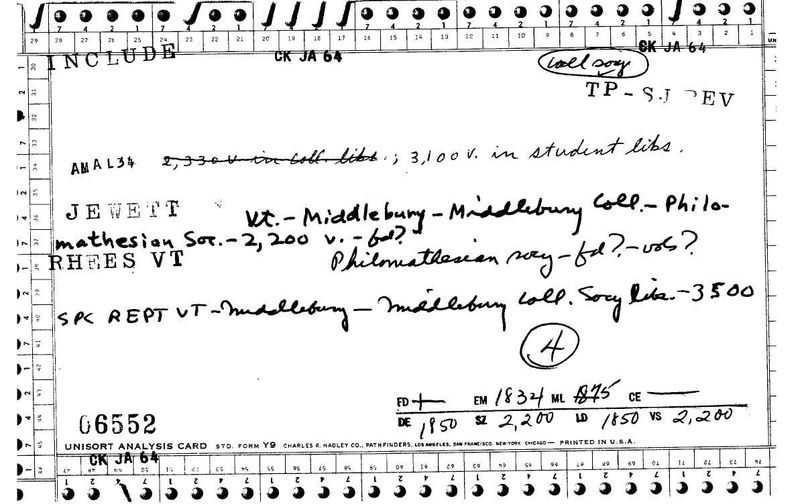 INCLUDE
CK JA 64
CK JA 64
Coll socy
TP - SJ REV
AMAL34 2,330 v. in coll. libs.; 3,100 v. in student libs.
JEWETT Vt. - Middlebury - Middlebury Coll. - Philo-
mathesian Soc. - 2,200 v. - fd?
RHEES VT Philomathesian socy - fd? - vols?
SPC REPT VT - Middlebury - Middlebury Coll. Socy libs. - 3500
4
FD + EM 1834 ML 1875 CE —
DE 1850 SZ 2,200 LD 1850 VS 2,200
06552
UNISORT ANALYSIS CARD STD. FORM Y9 CHARLES R. HADLEY CO., PATHFINDERS, LOS ANGELES, SAN FRANCISCO, NEW YORK CHICAGO — PRINTED IN U.S.A.
CK JA 64